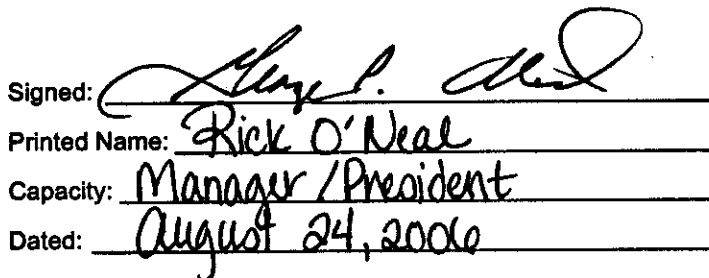 Signed: George P. O'Neal
Printed Name: Rick O'Neal
Capacity: Manager / President
Dated: August 24, 2006